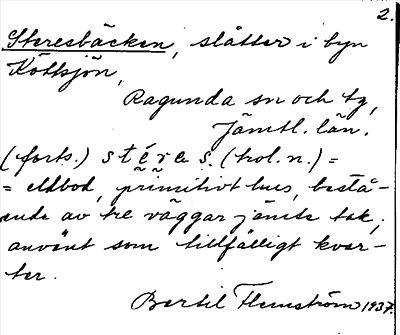 2.
Steresbäcken, slåtter i byn
Köttsjön,
Ragunda sn och tg,
Jämtl. län.
(forts.) stéres. (trol. n.) =
= eldbod, primitivt hus, bestå-
ende av tre väggar jämte tak,
använt som tillfälligt kvar-
ter.
Bertil Flemström 1937.